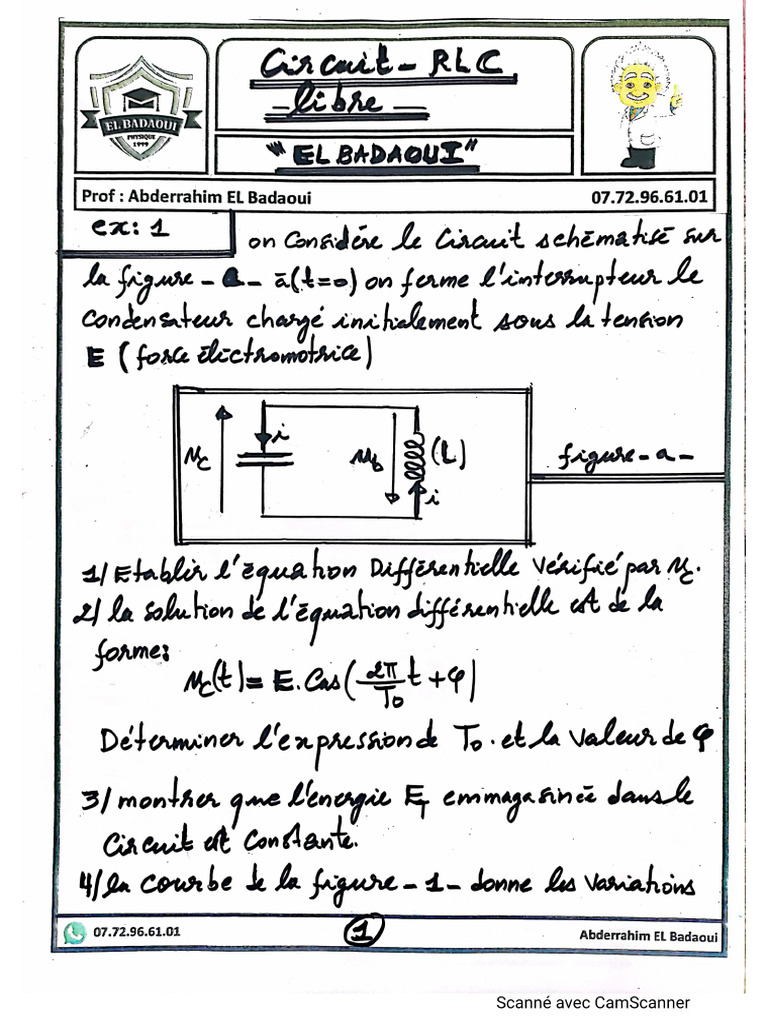 Circuit - RLC
- libre -
EL BADAOUI
PHYSIQUE
1999
"EL BADAOUI"
Prof : Abderrahim EL Badaoui 07.72.96.61.01
ex: 1
on Considère le Circuit schématisé sur
la figure - a - à (t=0) on ferme l'interrupteur le
Condensateur chargé initialement sous la tension
E (force électromotrice)
uc i ub (L) i
figure - a -
1/ Etablir l'équation Différentielle vérifié par uc.
2/ la solution de l'équation différentielle est de la
forme:
uc(t) = E. Cos(2π/T0 t + φ)
Déterminer l'expression de T0. et la valeur de φ
3/ montrer que l'énergie ET emmagasinée dans le
Circuit est Constante.
4/ la courbe de la figure - 1 - donne les variations
07.72.96.61.01 1 Abderrahim EL Badaoui
Scanné avec CamScanner